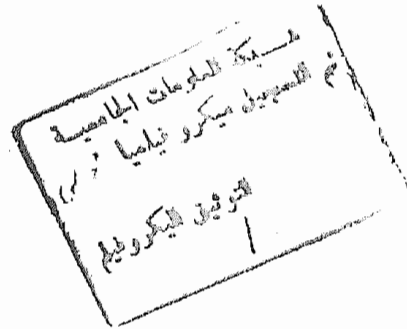 شبكة المعلومات الجامعية
تم التسجيل ميكروفيلميا
التوثيق الميكروفيلمي